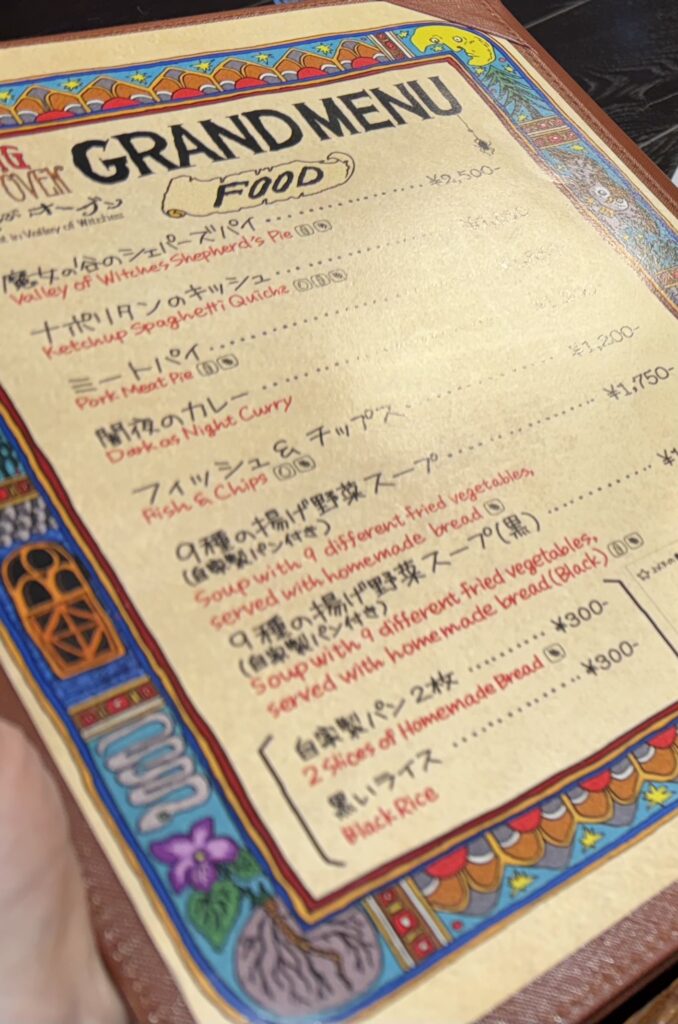 GRAND MENU
OVEN
オーブン
in Valley of Witches
FOOD
魔女の谷のシェパーズパイ ¥2,500-
Valley of Witches Shepherd's Pie
ナポリタンのキッシュ
Ketchup Spaghetti Quiche
ミートパイ
Pork Meat Pie
闇夜のカレー
Dark as Night Curry ¥1,200-
フィッシュ & チップス ¥1,750-
Fish & Chips
9種の揚げ野菜スープ
(自家製パン付き)
Soup with 9 different fried vegetables,
served with homemade bread
9種の揚げ野菜スープ(黒)
(自家製パン付き)
Soup with 9 different fried vegetables,
served with homemade bread (Black)
自家製パン2枚 ¥300-
2 Slices of Homemade Bread
黒いライス ¥300-
Black Rice